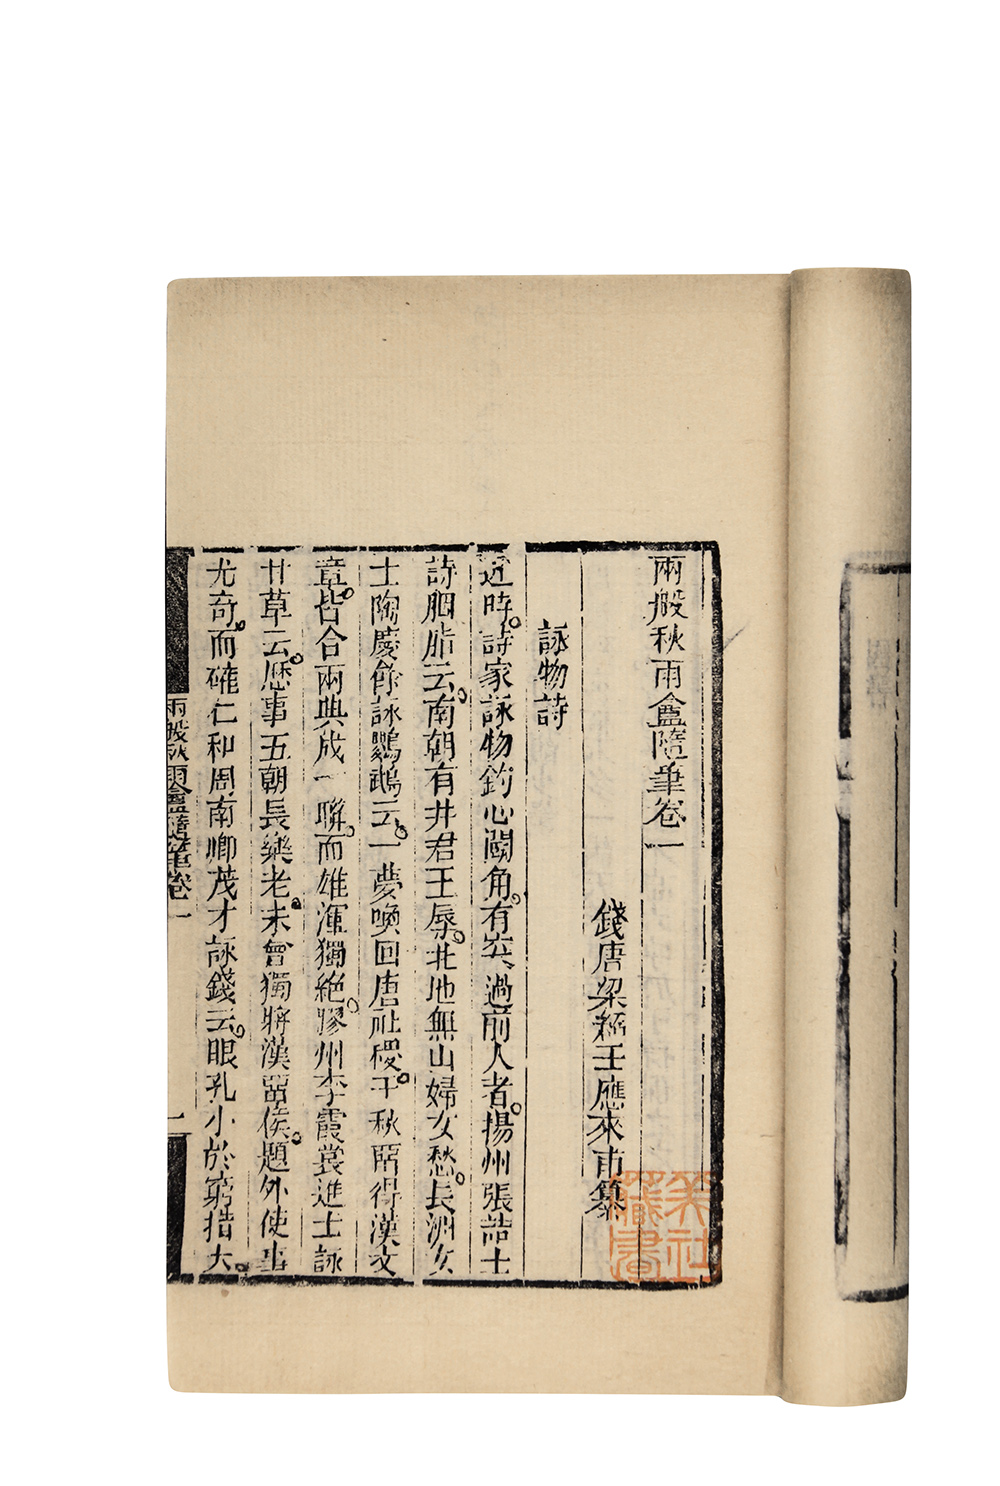 兩般秋雨盦隨筆卷一
錢唐梁紹壬應來甫纂
詠物詩
近時詩家詠物鈎心鬬角有突過前人者揚州張喆士
詩胭脂云南朝有井君王辱北地無山婦女愁長洲女
士陶慶餘詠鸚鵡云一夢喚回唐社稷千秋留得漢文
章皆合兩典成一聯而雄渾獨絶膠州李霞裳進士詠
甘草云歷事五朝長樂老未曾獨將漢留侯題外使事
尤奇而確仁和周南卿茂才詠錢云眼孔小於窮措大
兩般秋雨盦隨筆卷一
一
藏書